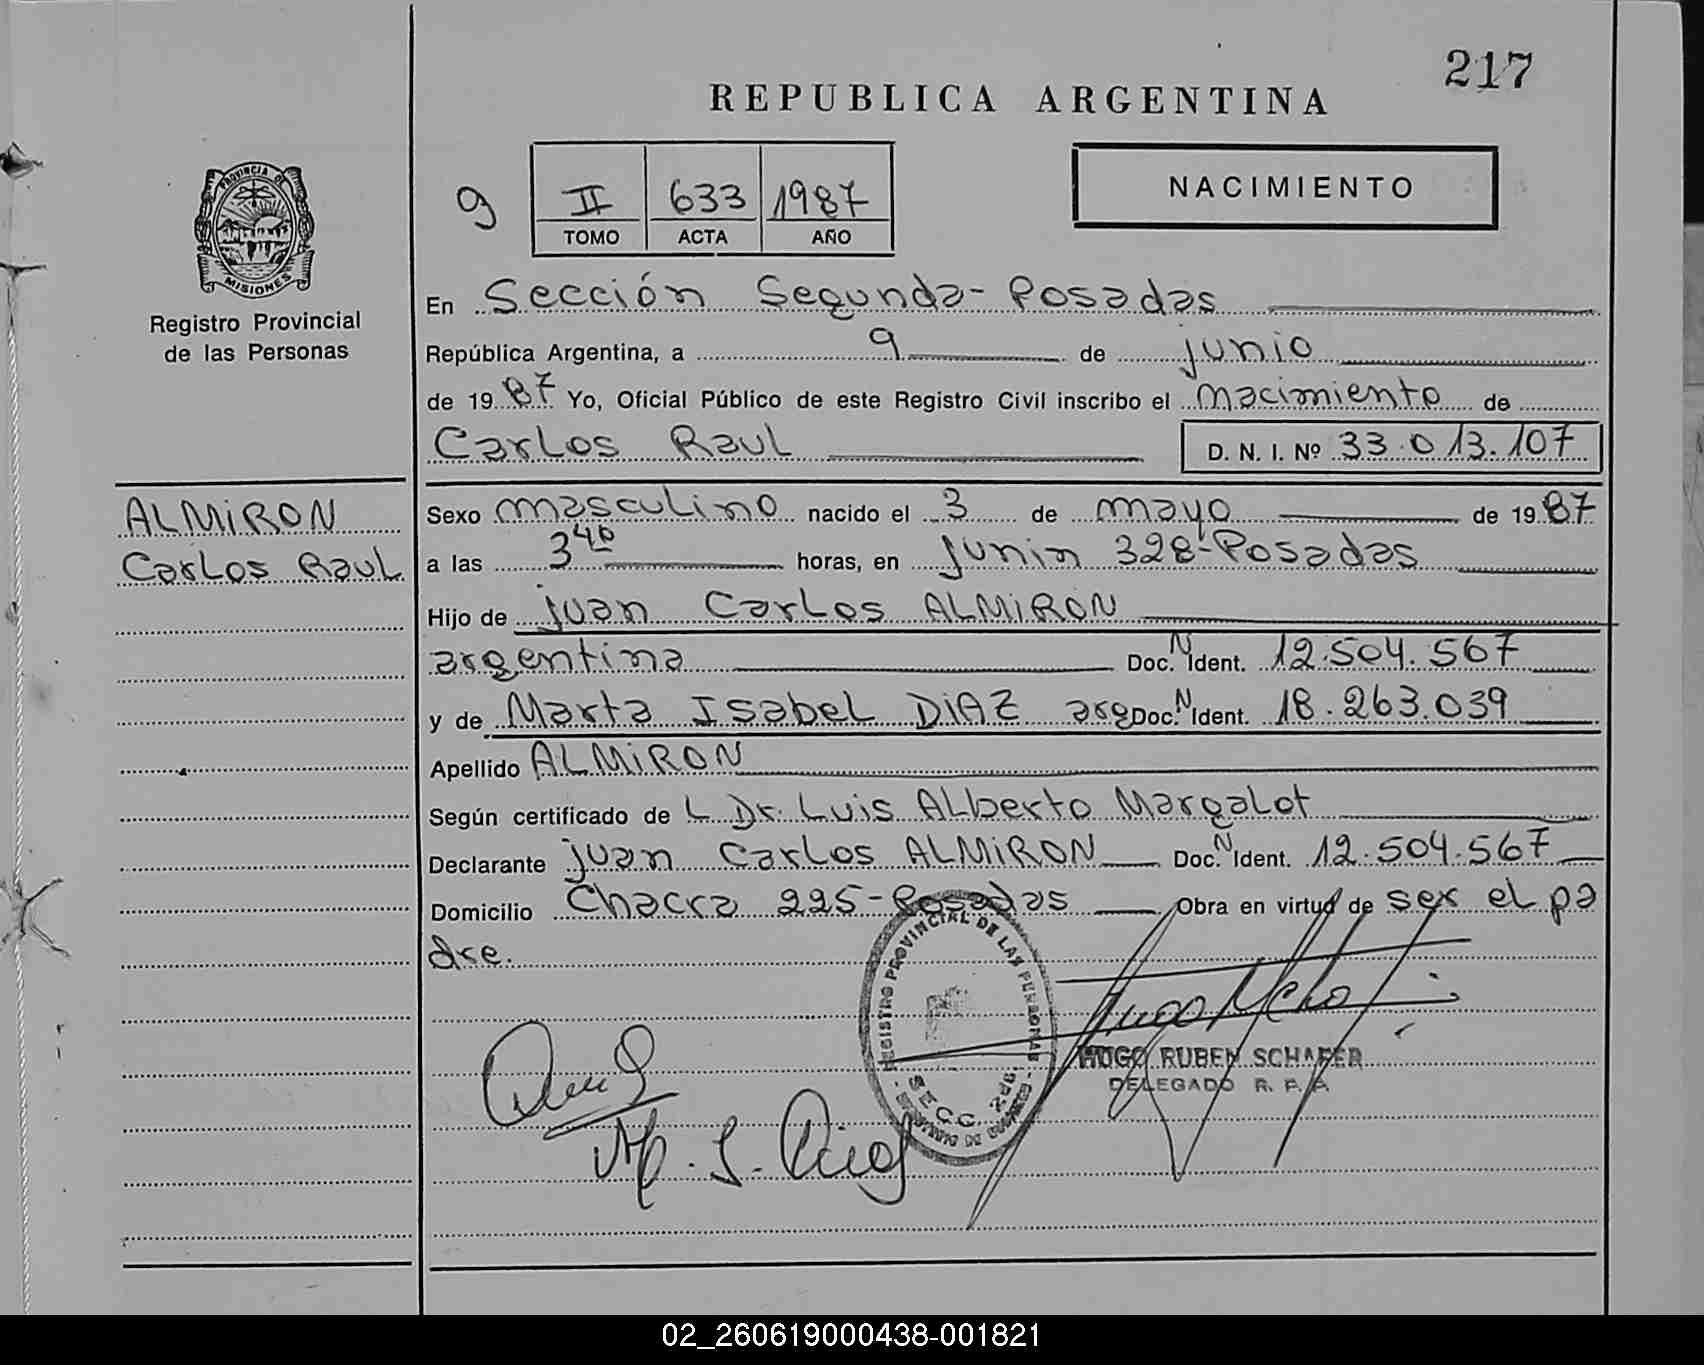 217
REPUBLICA ARGENTINA
9 II 633 1987
TOMO ACTA AÑO
NACIMIENTO
PROVINCIA DE MISIONES
Registro Provincial
de las Personas
ALMIRON
Carlos Raul
En Sección Segunda - Posadas
República Argentina, a 9 de junio
de 1987 Yo, Oficial Público de este Registro Civil inscribo el nacimiento de
Carlos Raul D. N. I. Nº 33.013.107
Sexo masculino nacido el 3 de mayo de 1987
a las 3 40 horas, en junin 328 - Posadas
Hijo de juan Carlos ALMIRON
argentina Doc. N Ident. 12.504.567
y de Marta Isabel DIAZ arg Doc. N Ident. 18.263.039
Apellido ALMIRON
Según certificado de L Dr. Luis Alberto Margalot
Declarante juan Carlos ALMIRON Doc. N Ident. 12.504.567
Domicilio Chacra 225 - Posadas Obra en virtud de ser el pa
dre.
REGISTRO PROVINCIAL DE LAS PERSONAS
SECC. 2da.
HUGO RUBEN SCHAFER
DELEGADO R. P. P.
02_260619000438-001821